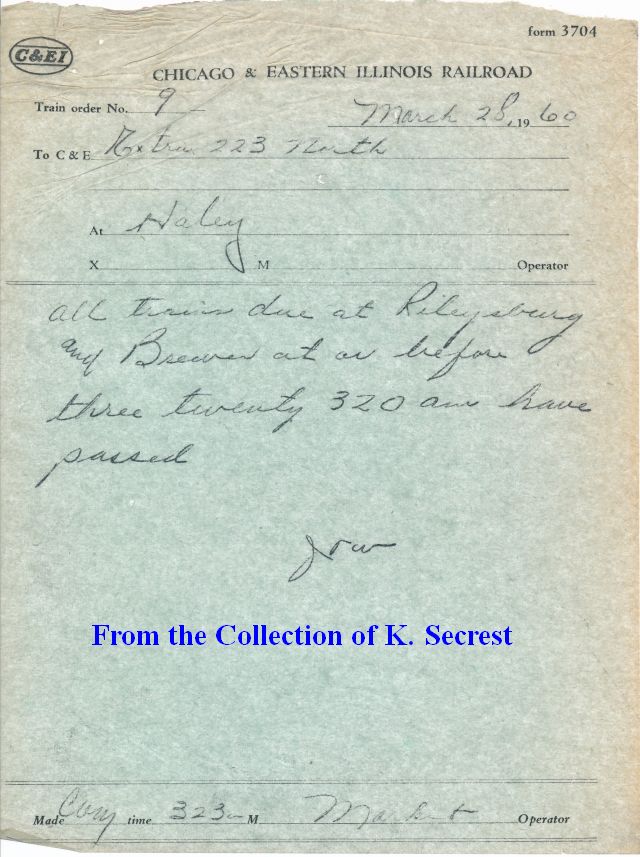 form 3704
C&EI
CHICAGO & EASTERN ILLINOIS RAILROAD
Train order No. 9
March 28, 19 60
To C & E Extra 223 North
At Haley
X M Operator
all trains due at Rileysburg
and Brewer at or before
three twenty 320 am have
passed
From the Collection of K. Secrest
Made time 323 a M Operator